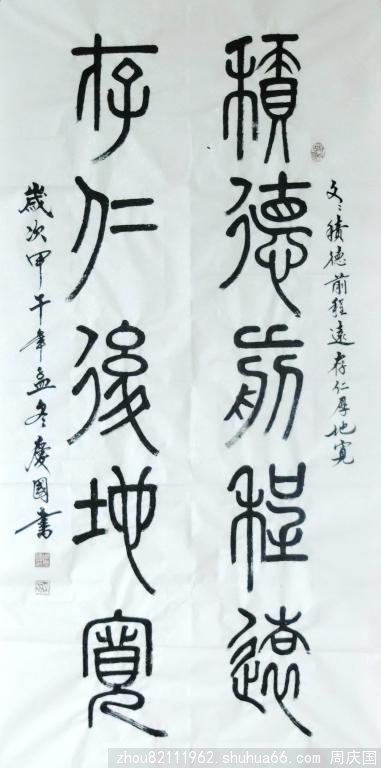 文：積德前程遠存仁厚地寬
積德前程遠
存仁後地寬
歲次甲午年孟冬慶國書
zhou82111962.shuhua66.com 周庆国